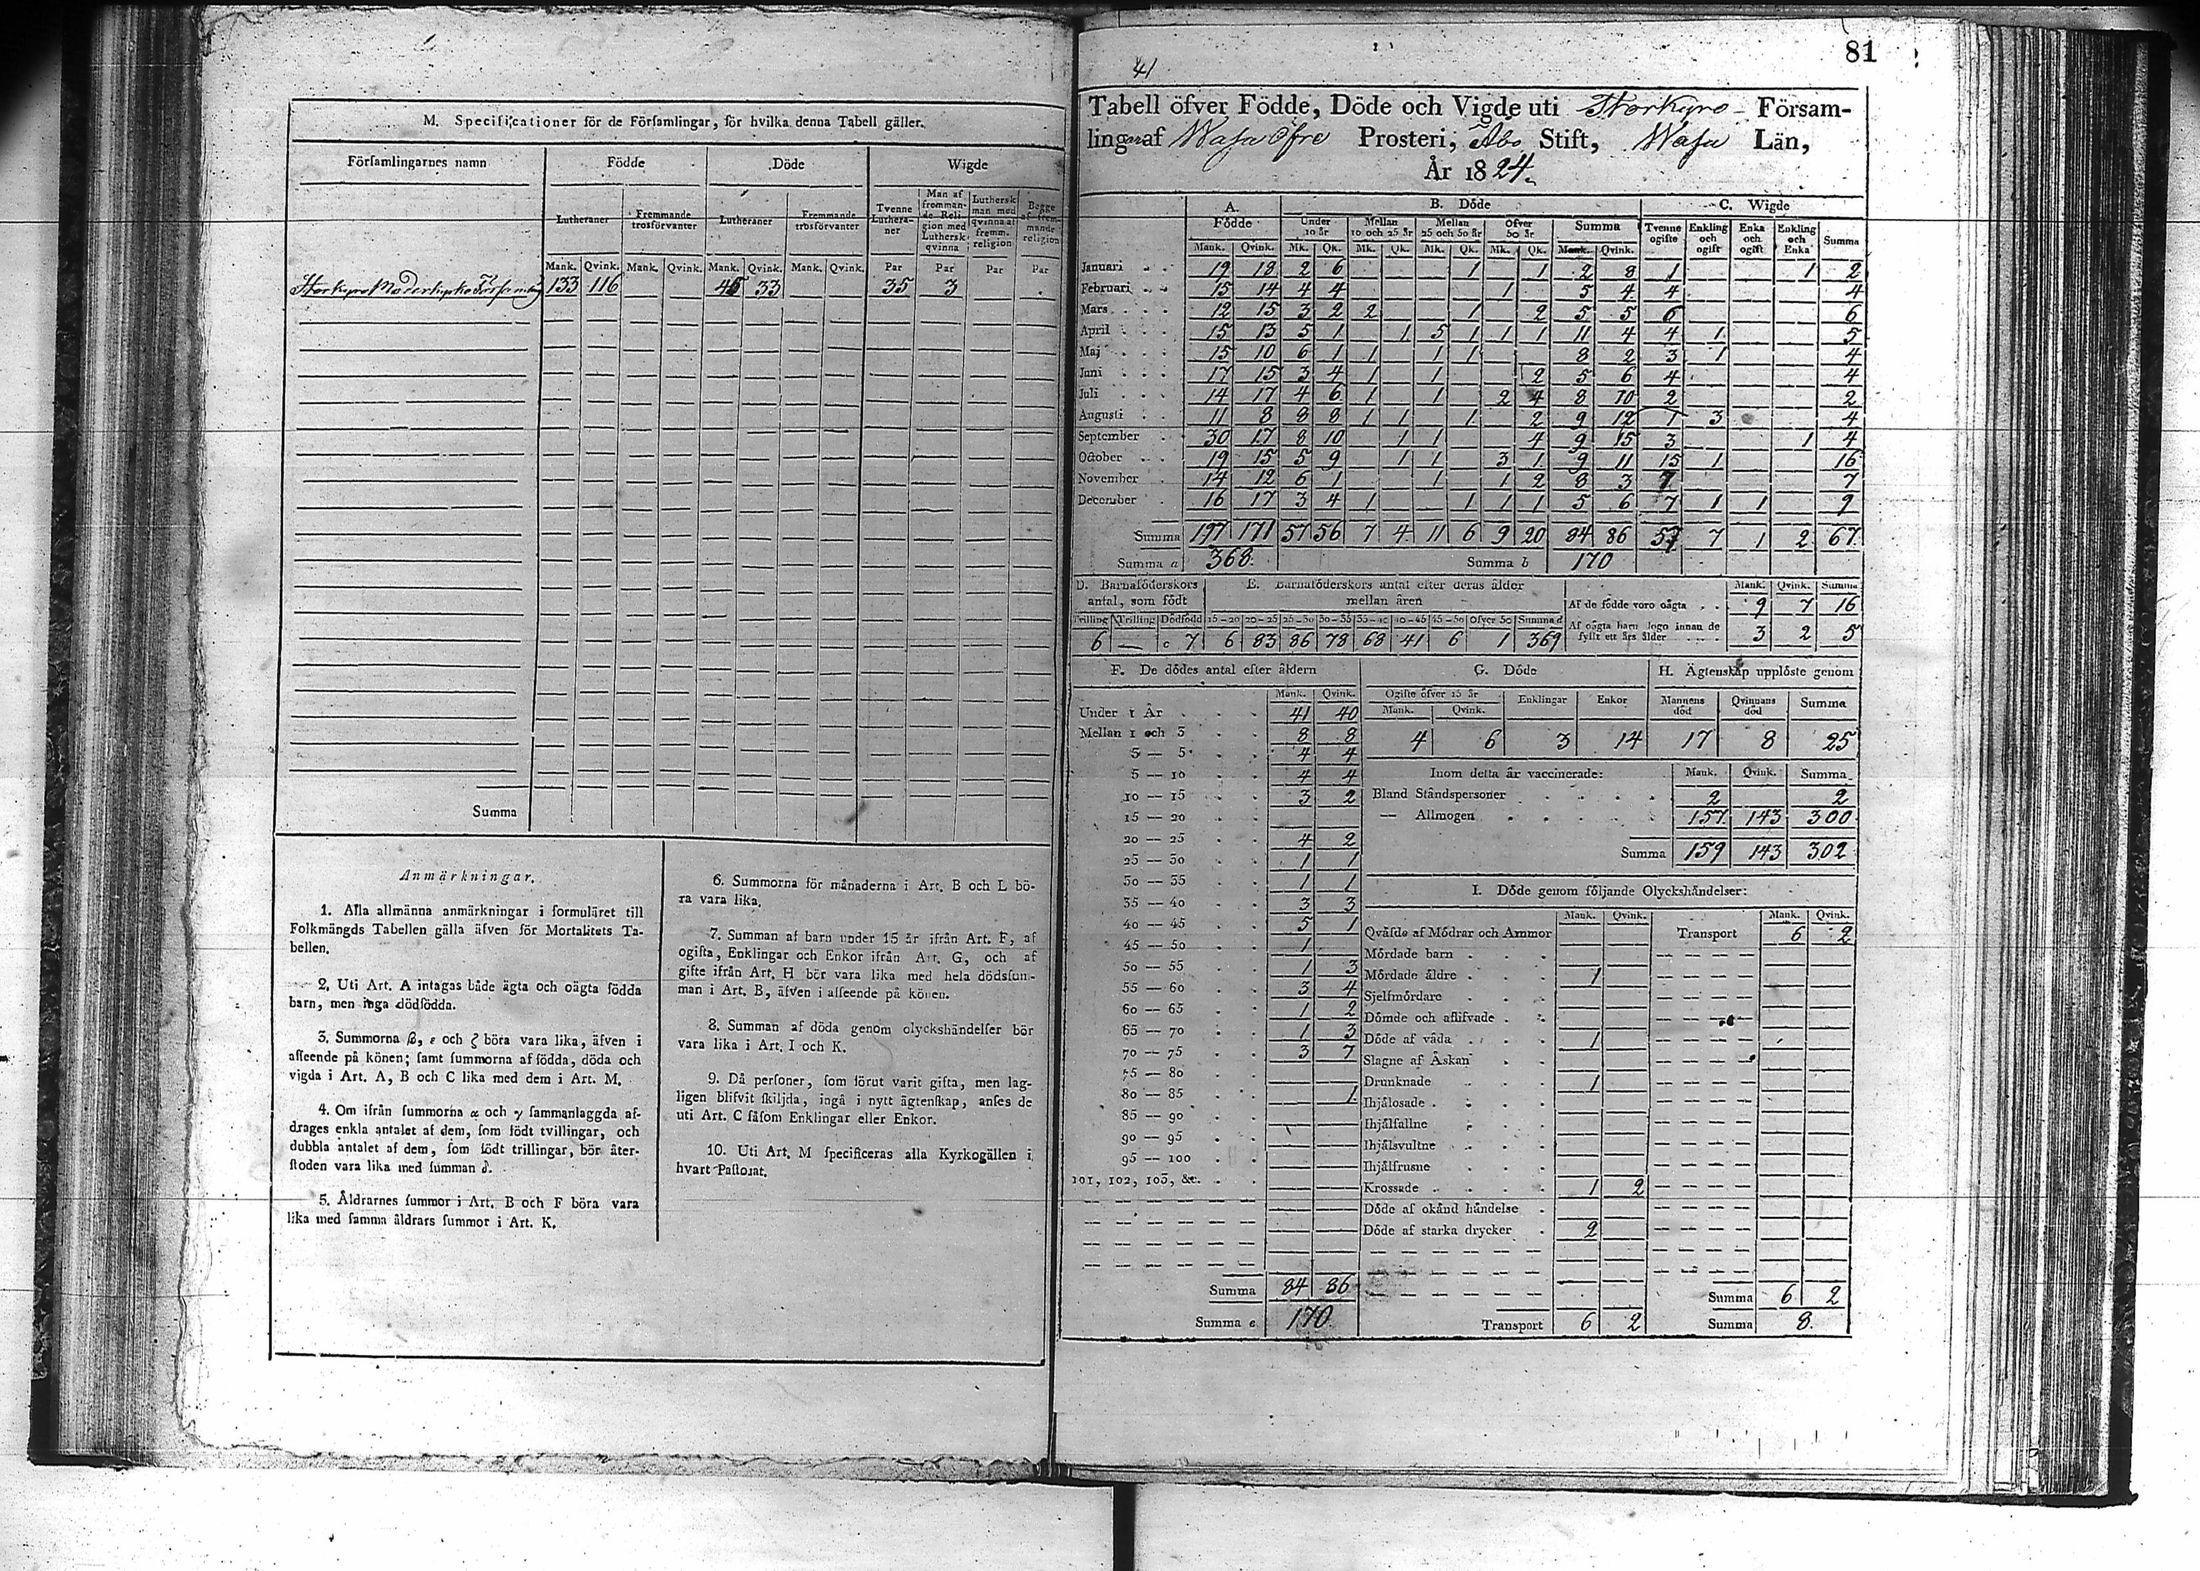 M. Specificationer för de Församlingar, för hvilka denna Tabell gäller.
Församlingarnes namn | Födde | Döde | Wigde
Lutheraner | Fremmande trosförvanter | Lutheraner | Fremmande trosförvanter | Tvenne Lutheraner | Man af fremmande Religion med Luthersk qvinna | Luthersk man med qvinna af fremm. religion | Begge af fremmande religion
Mank. | Qvink. | Mank. | Qvink. | Mank. | Qvink. | Mank. | Qvink. | Par | Par | Par | Par
Storkyro Moderkyrko Församling | 133 | 116 | 45 | 33 | 35 | 3
Summa
Anmärkningar.
1. Alla allmänna anmärkningar i formuläret till
Folkmängds Tabellen gälla äfven för Mortalitets Ta-
bellen.
2. Uti Art. A intagas både ägta och oägta födda
barn, men inga dödfödda.
3. Summorna β, ε och ζ böra vara lika, äfven i
afseende på könen; samt summorna af födda, döda och
vigda i Art. A, B och C lika med dem i Art. M.
4. Om ifrån summorna α och γ sammanlaggda af-
drages enkla antalet af dem, som födt tvillingar, och
dubbla antalet af dem, som födt trillingar, bör åter-
stoden vara lika med summan δ.
5. Åldrarnes summor i Art. B och F böra vara
lika med samma åldrars summor i Art. K.
6. Summorna för månaderna i Art. B och L bö-
ra vara lika.
7. Summan af barn under 15 år ifrån Art. F, af
ogifta, Enklingar och Enkor ifrån Art. G, och af
gifte ifrån Art. H bör vara lika med hela dödssum-
man i Art. B, äfven i afseende på könen.
8. Summan af döda genom olyckshändelser bör
vara lika i Art. I och K.
9. Då personer, som förut varit gifta, men lag-
ligen blifvit skiljda, ingå i nytt ägtenskap, anses de
uti Art. C såsom Enklingar eller Enkor.
10. Uti Art. M specificeras alla Kyrkogällen i
hvart Pastorat.
81
41
Tabell öfver Födde, Döde och Vigde uti Storkyro Församlingar af Wasa Öfre Prosteri, Åbo Stift, Wasa Län,
År 1824.
A. Födde | B. Döde | C. Wigde
Under 10 år | Mellan 10 och 25 år | Mellan 25 och 50 år | Öfver 50 år | Summa | Tvenne ogifte | Enkling och ogift | Enka och ogift | Enkling och Enka | Summa
Mank. | Qvink. | Mk. | Qk. | Mk. | Qk. | Mk. | Qk. | Mk. | Qk. | Mank. | Qvink.
Januari 19 18 2 6 1 1 2 8 1 1 2
Februari 15 14 4 4 1 5 4 4 4
Mars 12 15 3 2 2 1 2 5 5 6 6
April 15 13 5 1 1 5 1 1 1 11 4 4 1 5
Maj 15 10 6 1 1 1 1 8 2 3 1 4
Juni 17 15 3 4 1 1 2 5 6 4 4
Juli 14 17 4 6 1 1 2 4 8 10 2 2
Augusti 11 8 8 8 1 1 1 2 9 12 1 3 4
September 30 17 8 10 1 1 4 9 15 3 1 4
October 19 15 5 9 1 1 3 1 9 11 15 1 16
November 14 12 6 1 1 1 2 8 3 7 7
December 16 17 3 4 1 1 1 1 5 6 7 1 1 9
Summa 197 171 57 56 7 4 11 6 9 20 84 86 57 7 1 2 67
Summa a 368. Summa b 170
D. Barnaföderskors antal, som födt | E. Barnaföderskors antal efter deras ålder mellan åren | Mank. | Qvink. | Summa
Tvilling | Trilling | Dödfödd | 15-20 | 20-25 | 25-30 | 30-35 | 35-40 | 40-45 | 45-50 | Öfver 50 | Summa d
6 | — | c 7 | 6 | 83 | 86 | 78 | 68 | 41 | 6 | 1 | 369
Af de födde voro oägta 9 7 16
Af oägta barn dogo innan de fyllt ett års ålder 3 2 5
F. De dödes antal efter åldern
Mank. Qvink.
Under 1 År 41 40
Mellan 1 och 3 8 8
3 — 5 4 4
5 — 10 4 4
10 — 15 3 2
15 — 20
20 — 25 4 2
25 — 30 1 1
30 — 35 1 1
35 — 40 3 3
40 — 45 5 1
45 — 50 1
50 — 55 1 3
55 — 60 3 4
60 — 65 1 2
65 — 70 1 3
70 — 75 3 7
75 — 80
80 — 85 1
85 — 90
90 — 95
95 — 100
101, 102, 103, &c.
Summa 84 86
Summa e 170.
G. Döde | H. Ägtenskap upplöste genom
Ogifte öfver 15 år | Enklingar | Enkor | Mannens död | Qvinnans död | Summa
Mank. | Qvink.
4 | 6 | 3 | 14 | 17 | 8 | 25
Inom detta år vaccinerade: Mank. Qvink. Summa
Bland Ståndspersoner 2 2
— Allmogen 157 143 300
Summa 159 143 302
I. Döde genom följande Olyckshändelser:
Mank. Qvink. Mank. Qvink.
Qväfde af Mödrar och Ammor Transport 6 2
Mördade barn
Mördade äldre 1
Sjelfmördare
Dömde och aflifvade
Döde af våda 1
Slagne af Åskan
Drunknade 1
Ihjälosade
Ihjälfallne
Ihjälsvultne
Ihjälfrusne
Krossade 1 2
Döde af okänd händelse
Döde af starka drycker 2
Summa 6 2
Transport 6 2 Summa 8.